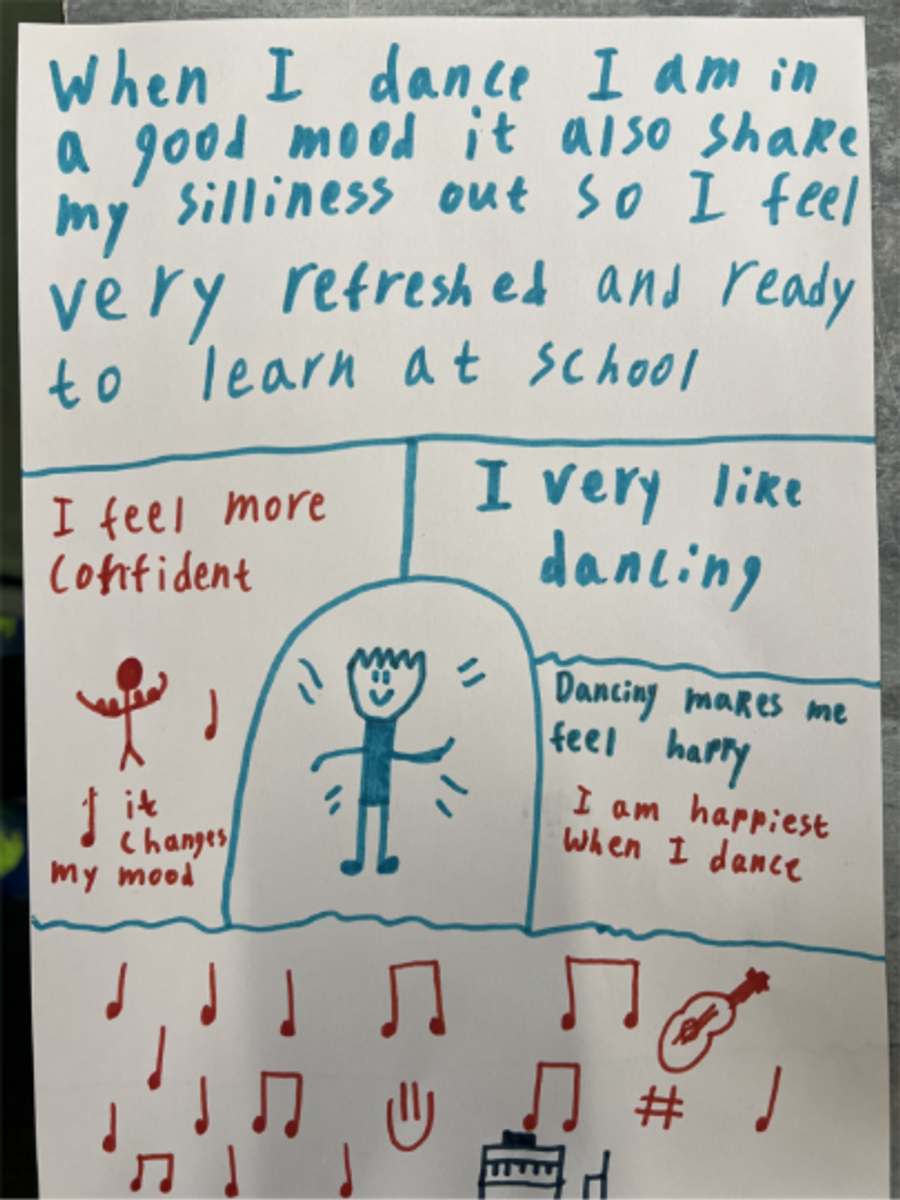 When I dance I am in
a good mood it also shake
my silliness out so I feel
very refreshed and ready
to learn at school
I feel more
Confident
I very like
dancing
it
changes
my mood
Dancing makes me
feel happy
I am happiest
When I dance
#